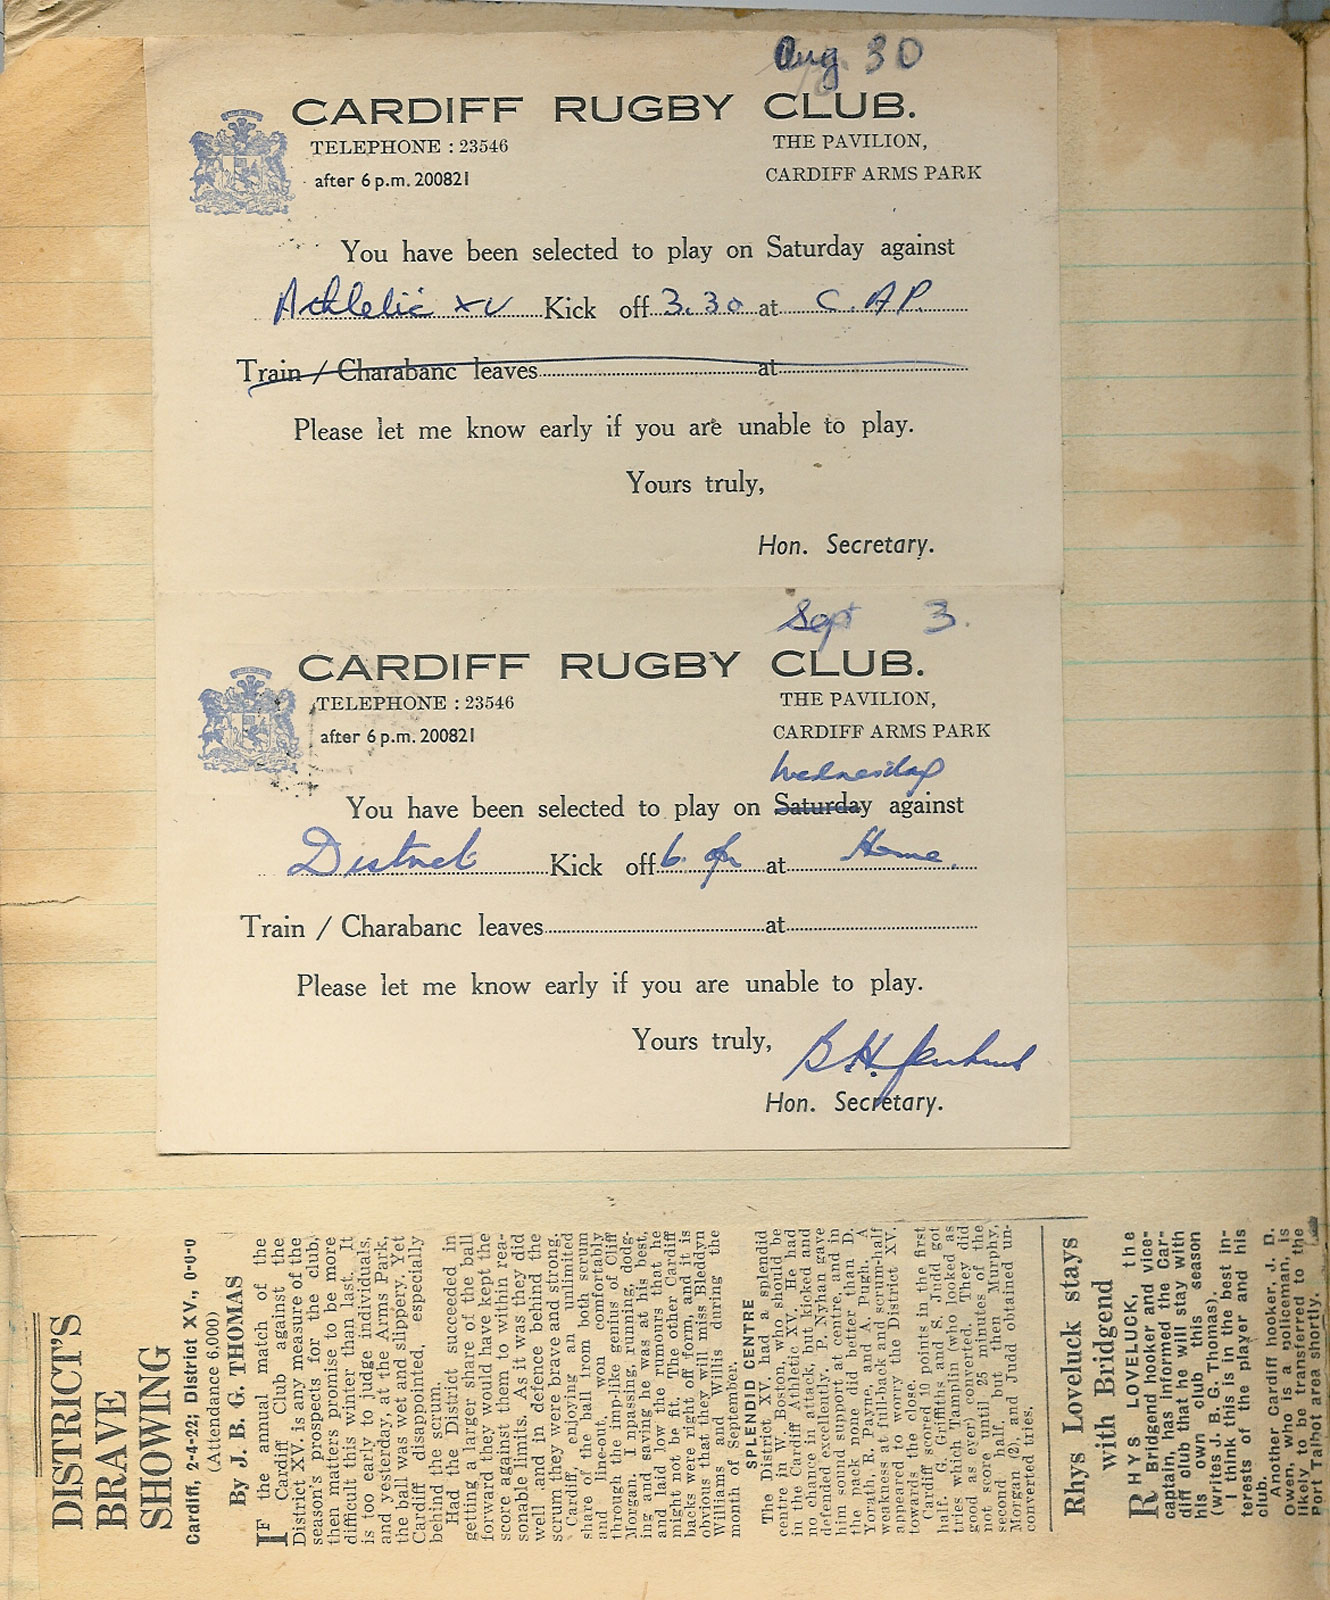 Aug. 30
CARDIFF RUGBY CLUB.
TELEPHONE : 23546
THE PAVILION,
after 6 p.m. 200821
CARDIFF ARMS PARK
You have been selected to play on Saturday against
Athletic XV Kick off 3.30 at C.A.P.
Train / Charabanc leaves at
Please let me know early if you are unable to play.
Yours truly,
Hon. Secretary.
Sept 3.
CARDIFF RUGBY CLUB.
TELEPHONE : 23546
THE PAVILION,
after 6 p.m. 200821
CARDIFF ARMS PARK
Wednesday
You have been selected to play on Saturday against
District Kick off 6. pm at Home.
Train / Charabanc leaves at
Please let me know early if you are unable to play.
Yours truly, B.H. Jenkins
Hon. Secretary.
DISTRICT'S
BRAVE
SHOWING
Cardiff, 2-4-22; District XV., 0-0-0
(Attendance 6,000)
By J. B. G. THOMAS
IF the annual match of the
Cardiff Club against the
District XV. is any measure of the
season's prospects for the club,
then matters promise to be more
difficult this winter than last. It
is too early to judge individuals,
and yesterday, at the Arms Park,
the ball was wet and slippery. Yet
Cardiff disappointed, especially
behind the scrum.
Had the District succeeded in
getting a larger share of the ball
forward they would have kept the
score against them to within rea-
sonable limits. As it was they did
well and in defence behind the
scrum they were brave and strong.
Cardiff, enjoying an unlimited
share of the ball from both scrum
and line-out, won comfortably
through the imp-like genius of Cliff
Morgan. In passing, running, dodg-
ing and saving he was at his best,
and laid low the rumours that he
might not be fit. The other Cardiff
backs were right off form, and it is
obvious that they will miss Bleddyn
Williams and Willis during the
month of September.
SPLENDID CENTRE
The District XV. had a splendid
centre in W. Boston, who should be
in the Cardiff Athletic XV. He had
no chance in attack, but kicked and
defended excellently. P. Nyhan gave
him sound support at centre, and in
the pack none did better than D.
Yorath, R. Payne, and A. Pugh. A
weakness at full-back and scrum-half
appeared to worry the District XV.
towards the close.
Cardiff scored 10 points in the first
half. G. Griffiths and S. Judd got
tries which Tamplin (who looked as
good as ever) converted. They did
not score until 25 minutes of the
second half, but then Murphy,
Morgan (2), and Judd obtained un-
converted tries.
Rhys Loveluck stays
with Bridgend
RHYS LOVELUCK, the
Bridgend hooker and vice-
captain, has informed the Car-
diff club that he will stay with
his own club this season
(writes J. B. G. Thomas).
I think this is in the best in-
terests of the player and his
club.
Another Cardiff hooker, J. D.
Owen, who is a policeman, is
likely to be transferred to the
Port Talbot area shortly.